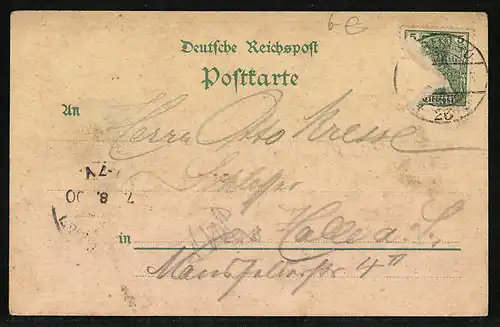 6-€
Deutsche Reichspost
Postkarte
26
An
Herrn Otto Kresse
Schlosser
7-V.
7. 8. 00
in Halle a. S.
Mansfelderstr 4 II